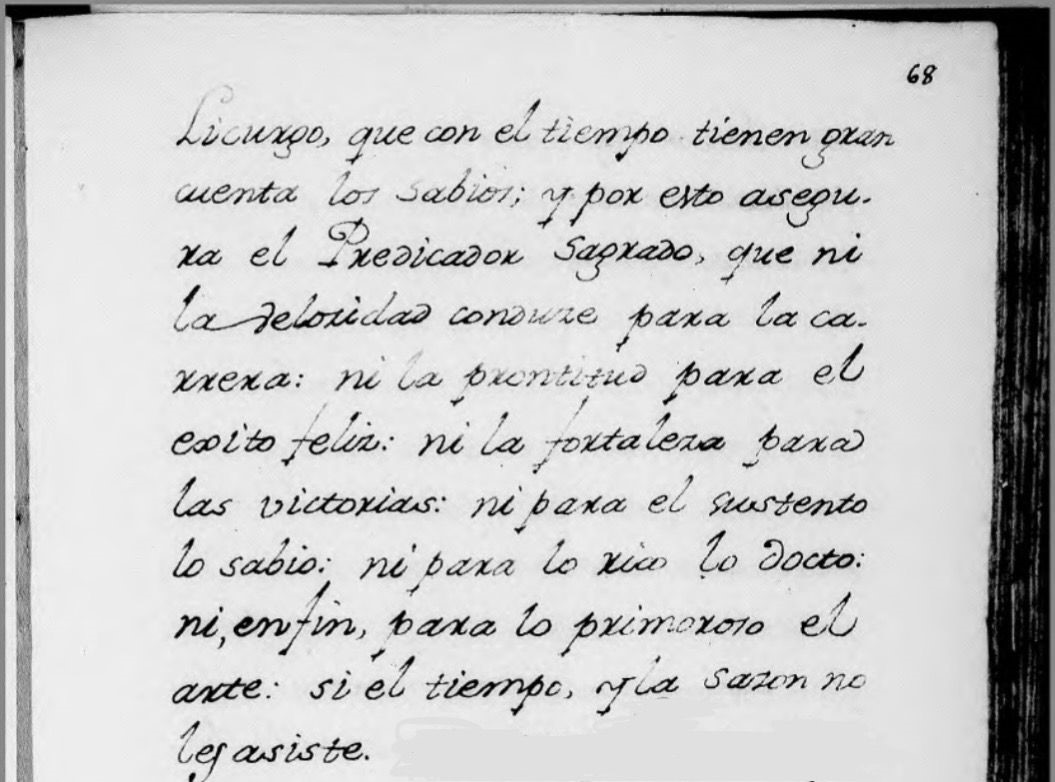 68
Licurgo, que con el tiempo tienen gran
cuenta los sabios; y por esto asegu-
ra el Predicador Sagrado, que ni
la velozidad conduze para la ca-
rrera: ni la prontitud para el
exito feliz: ni la fortaleza para
las victorias: ni para el sustento
lo sabio: ni para lo rico lo docto:
ni, enfin, para lo primoroso el
arte: si el tiempo, y la sazon no
les asiste.